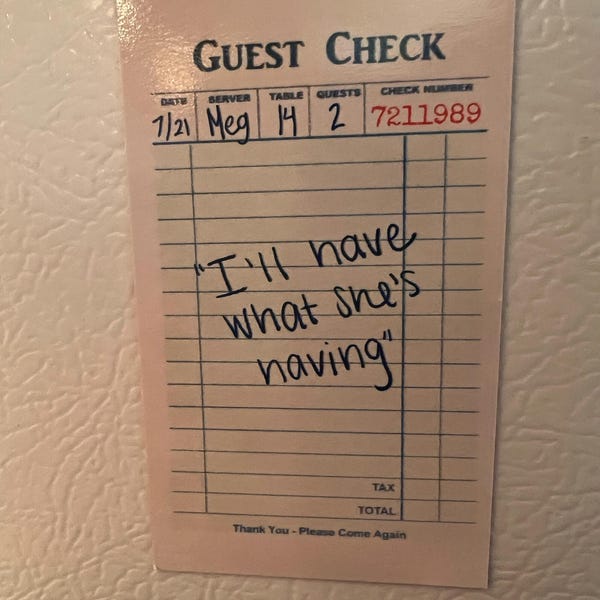 GUEST CHECK
DATE SERVER TABLE GUESTS CHECK NUMBER
7/21 Meg 14 2 7211989
"I'll have
what she's
having"
TAX
TOTAL
Thank You - Please Come Again